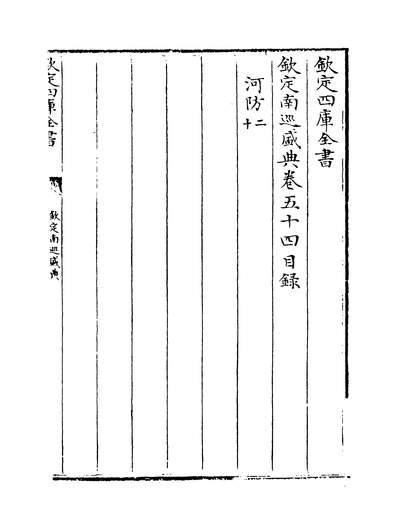 欽定四庫全書
欽定南巡盛典卷五十四目録
河防二十
欽定四庫全書
欽定南巡盛典